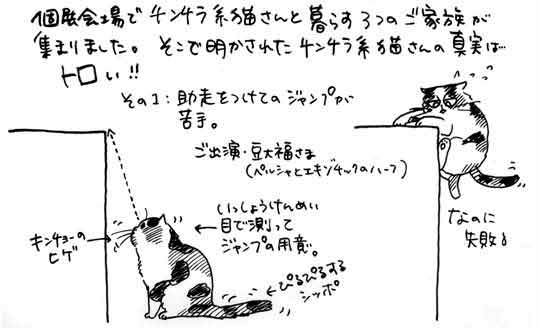 個展会場でチンチラ系猫さんと暮らす3つのご家族が
集まりました。そこで明かされたチンチラ系猫さんの真実は…
トロい!!
その1:助走をつけてのジャンプが
苦手。
ご出演・豆大福さま
(ペルシャとエキゾチックのハーフ)
いっしょうけんめい
目で測って
ジャンプの用意。
キンチョーの
ヒゲ
ぴるぴるする
シッポ
なのに
失敗